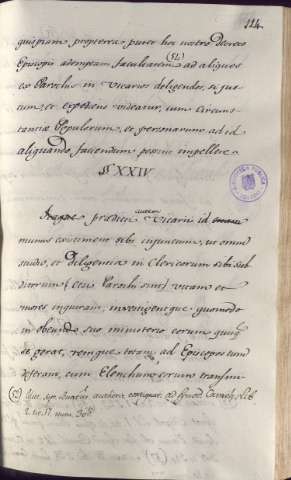 114
quispiam propterea putet hoc nostro Decreto
Episcopis ademptam facultatem (51) ad aliquos
ex Parochis in Vicarios deligendos, si jus
tum, et expediens videatur, cum circuns
tantiæ Populorum, et personarum ad id
aliquando faciendum possint impellere.
§ XXIV.
prædicti autem Vicarii id
munus existiment sibi injunctum, ut omni
studio, et diligentia in Clericorum sibi sub
ditorum (etsi Parochi sint) vitam et
mores inquirant, investigentque quomodo
in suo ministerio eorum quisq
se gerat, remque totam ad Episcopos tum
deferant, cum Elenchum eorum transmi
(52)
2. tit. 17. num. 308.